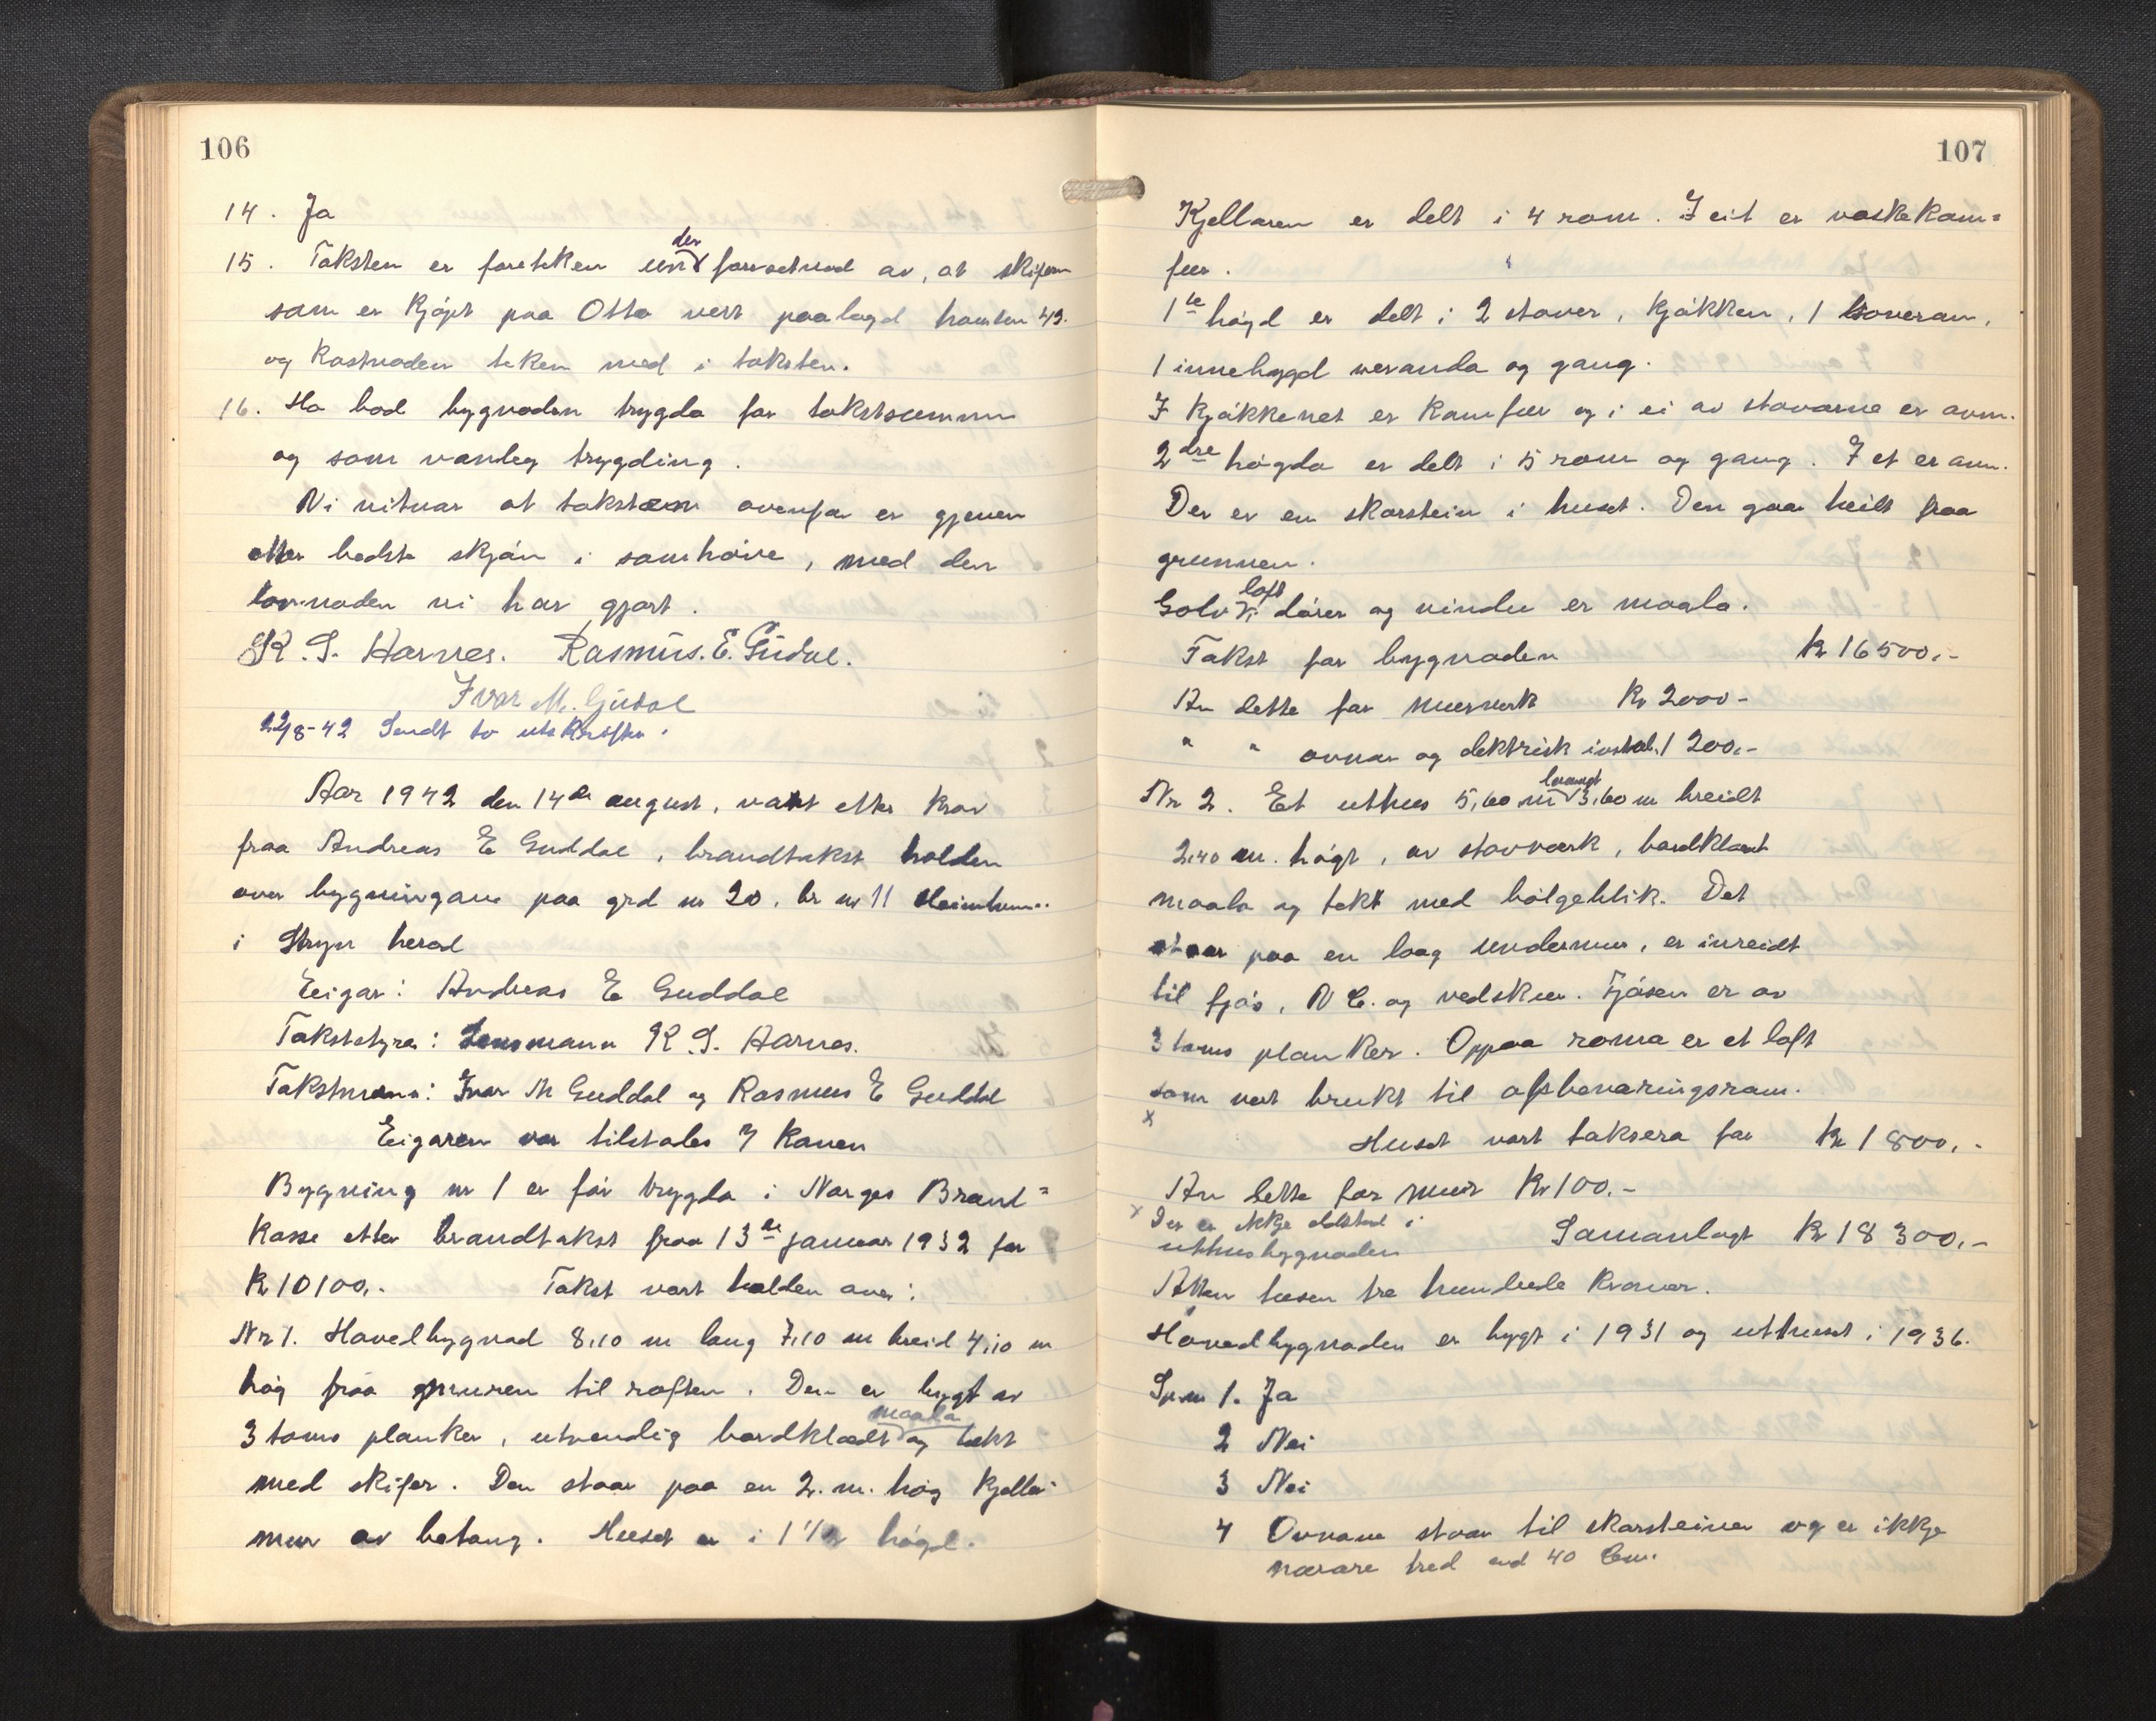 106
14. Ja
15. Taksten er foreteken under forsetnad av, at skifern
som er kjøpt paa Otta vert paalagd hausten 43.
og kostnaden teken med i taksten.
16. Ha bad bygnaden trygda for takstsummen
og som vanleg trygding.
Vi vitnar at taksten ovenfor er gjeven
etter bedste skjøn i samhøve, med den
lovnaden vi har gjort.
K. S. Harnes. Rasmus. E. Gudal.
Ivar M. Gudal
22/8-42 Sendt to utskrifter.
Aar 1942 den 14de august, vart etter krav
fraa Andreas E Guddal, brandtakst halden
over bygningane paa grd nr 20, br nr 11
i Stryn herad
Eigar: Andreas E Guddal
Takststyrar: Lensmann K. S. Harnes.
Takstmenn: Ivar M Guddal og Rasmus E Guddal
Eigaren var tilstades
Bygning nr 1 er før trygda i Norges Brand=
kasse etter brandtakst fraa 13de januar 1932 for
Kr 10100,- Takst vart halden over:
Nr 1. Hovedbygnad 8,10 m lang 7,10 m breid 4,10 m
høg fraa gmuren til raften. Den er bygt av
3 toms planker, utvendig bordklædt maala og tækt
med skifer. Den staar paa en 2. m. høg kjeller
mur av betong. Huset er i 1 1/2 høgd.
107
Kjellaren er delt i 4 rom. I eit er vaskekom=
fur.
1te høgd er delt i 2 stover, kjøkken, 1 soverom,
1 innebygd veranda og gang.
I kjøkkenet er komfur og i ei av stovorne er ovn.
2dre høgda er delt i 5 rom og gang. I et er ovn.
Der er en skorstein i huset. Den gaar heilt fraa
grunnen.
Golv, loft, dører og vindu er maala.
Takst for bygnaden kr 16500,-
Av dette for murverk Kr 2000-
" " ovnar og elektrisk instal. 1200,-
Nr 2. Et uthus 5,60 m langt 3,60 m breidt
2,40 m. høgt, av stavverk, bordklædt
maala og tekt med bølgeblik. Det
staar paa en laag undermur, er inreidt
til fjøs, V C. og vedskur. Fjøsen er av
3 toms planker. Oppaa roma er et loft
som vert brukt til opbevaringsrom.
x
Huset vart taksera for kr 1800,-
Av dette for mur Kr 100.-
x Der er ikkje eldstad i
uthusbygnaden
Samanlagt kr 18300,-
Atten tusen tre hundrede kroner.
Hovedbygnaden er bygt i 1931 og uthuset i 1936.
Spm 1. Ja
2 Nei
3 Nei
4 Ovnane staar til skorsteinen og er ikkje
nærare tred end 40 Cm.